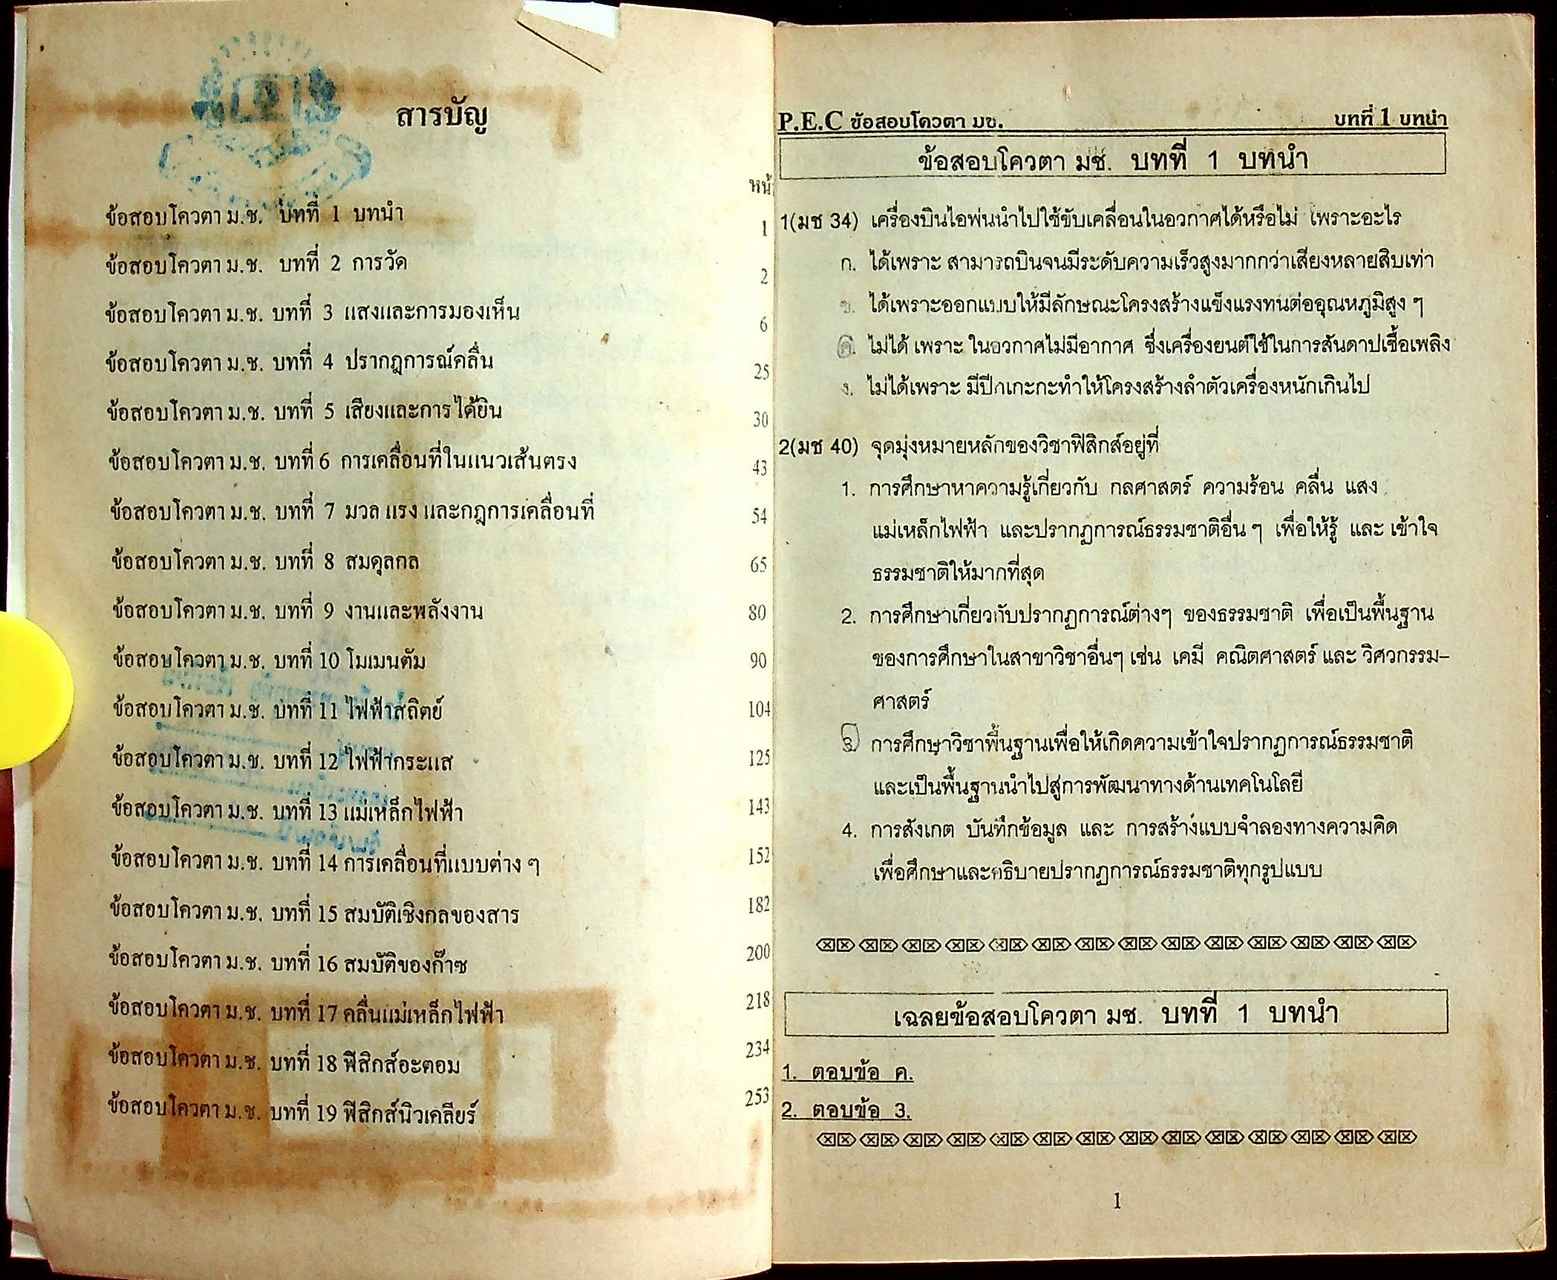 สารบัญ
หน้
ข้อสอบโควตา ม.ช. บทที่ 1 บทนำ 1
ข้อสอบโควตา ม.ช. บทที่ 2 การวัด 2
ข้อสอบโควตา ม.ช. บทที่ 3 แสงและการมองเห็น 6
ข้อสอบโควตา ม.ช. บทที่ 4 ปรากฎการณ์คลื่น 25
ข้อสอบโควตา ม.ช. บทที่ 5 เสียงและการได้ยิน 30
ข้อสอบโควตา ม.ช. บทที่ 6 การเคลื่อนที่ในแนวเส้นตรง 43
ข้อสอบโควตา ม.ช. บทที่ 7 มวล แรง และกฎการเคลื่อนที่ 54
ข้อสอบโควตา ม.ช. บทที่ 8 สมดุลกล 65
ข้อสอบโควตา ม.ช. บทที่ 9 งานและพลังงาน 80
ข้อสอบโควตา ม.ช. บทที่ 10 โมเมนตัม 90
ข้อสอบโควตา ม.ช. บทที่ 11 ไฟฟ้าสถิตย์ 104
ข้อสอบโควตา ม.ช. บทที่ 12 ไฟฟ้ากระแส 125
ข้อสอบโควตา ม.ช. บทที่ 13 แม่เหล็กไฟฟ้า 143
ข้อสอบโควตา ม.ช. บทที่ 14 การเคลื่อนที่แบบต่าง ๆ 152
ข้อสอบโควตา ม.ช. บทที่ 15 สมบัติเชิงกลของสาร 182
ข้อสอบโควตา ม.ช. บทที่ 16 สมบัติของก๊าซ 200
ข้อสอบโควตา ม.ช. บทที่ 17 คลื่นแม่เหล็กไฟฟ้า 218
ข้อสอบโควตา ม.ช. บทที่ 18 ฟิสิกส์อะตอม 234
ข้อสอบโควตา ม.ช. บทที่ 19 ฟิสิกส์นิวเคลียร์ 253
P.E.C ข้อสอบโควตา มช. บทที่ 1 บทนำ
ข้อสอบโควตา มช. บทที่ 1 บทนำ
1(มช 34) เครื่องบินไอพ่นนำไปใช้ขับเคลื่อนในอวกาศได้หรือไม่ เพราะอะไร
ก. ได้เพราะ สามารถบินจนมีระดับความเร็วสูงมากกว่าเสียงหลายสิบเท่า
ข. ได้เพราะออกแบบให้มีลักษณะโครงสร้างแข็งแรงทนต่ออุณหภูมิสูง ๆ
ค. ไม่ได้ เพราะ ในอวกาศไม่มีอากาศ ซึ่งเครื่องยนต์ใช้ในการสันดาปเชื้อเพลิง
ง. ไม่ได้เพราะ มีปีกเกะกะทำให้โครงสร้างลำตัวเครื่องหนักเกินไป
2(มช 40) จุดมุ่งหมายหลักของวิชาฟิสิกส์อยู่ที่
1. การศึกษาหาความรู้เกี่ยวกับ กลศาสตร์ ความร้อน คลื่น แสง
แม่เหล็กไฟฟ้า และปรากฏการณ์ธรรมชาติอื่น ๆ เพื่อให้รู้ และ เข้าใจ
ธรรมชาติให้มากที่สุด
2. การศึกษาเกี่ยวกับปรากฏการณ์ต่างๆ ของธรรมชาติ เพื่อเป็นพื้นฐาน
ของการศึกษาในสาขาวิชาอื่นๆ เช่น เคมี คณิตศาสตร์ และ วิศวกรรม-
ศาสตร์
3. การศึกษาวิชาพื้นฐานเพื่อให้เกิดความเข้าใจปรากฏการณ์ธรรมชาติ
และเป็นพื้นฐานนำไปสู่การพัฒนาทางด้านเทคโนโลยี
4. การสังเกต บันทึกข้อมูล และ การสร้างแบบจำลองทางความคิด
เพื่อศึกษาและอธิบายปรากฏการณ์ธรรมชาติทุกรูปแบบ
เฉลยข้อสอบโควตา มช. บทที่ 1 บทนำ
1. ตอบข้อ ค.
2. ตอบข้อ 3.
1